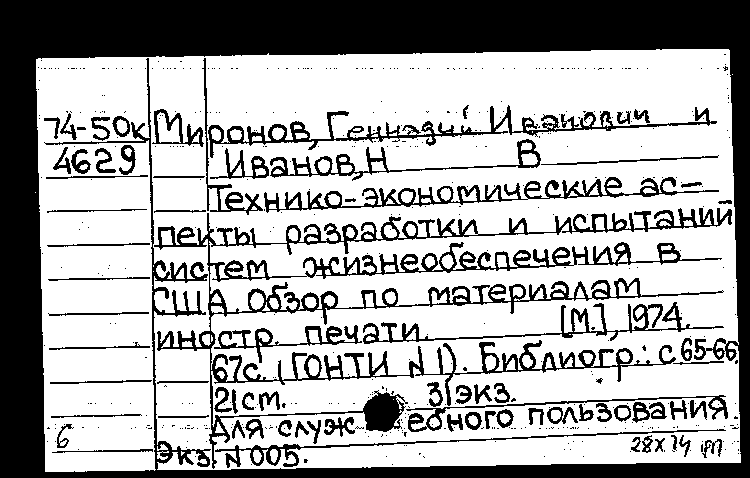 74-50к Миронов, Геннадий Иванович и
4629 Иванов, Н В
Технико-экономические ас-
пекты разработки и испытаний
систем жизнеобеспечения в
США. Обзор по материалам
иностр. печати. [М.], 1974.
67с. (ГОНТИ N 1). Библиогр.: с. 65-66,
21ст. 31экз.
Для служебного пользования.
6 Экз. N 005. 28 X 74